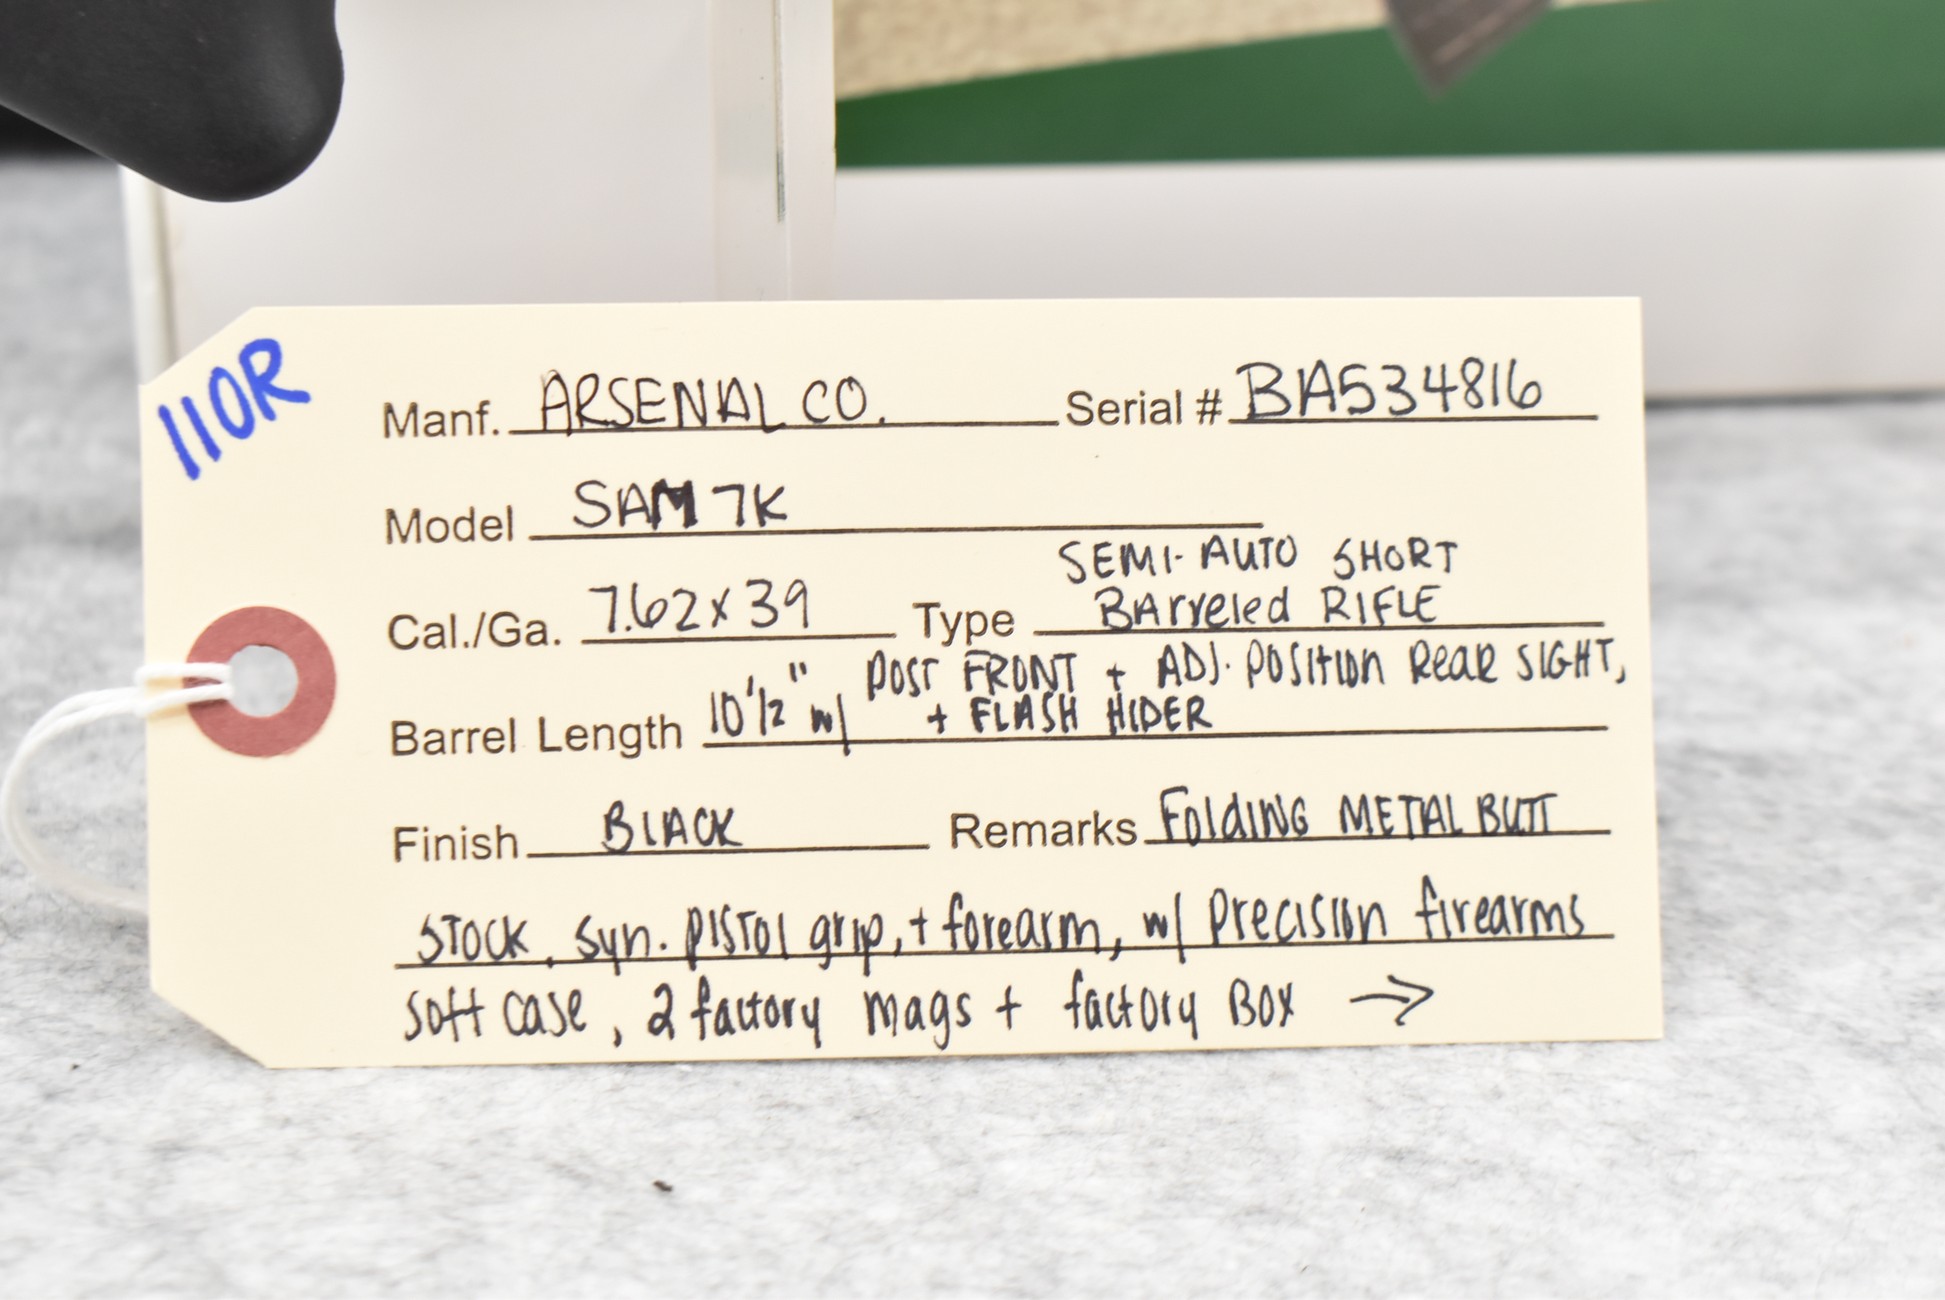 110R
Manf. ARSENAL CO. Serial # BA534816
Model SAM 7K
Cal./Ga. 7.62x39 Type SEMI-AUTO SHORT
BArreled RIFLE
Barrel Length 10 1/2" w/ POST FRONT + ADJ. POSITION Rear SIGHT,
+ FLASH HIDER
Finish BLACK Remarks FoldING METAL BUTT
STOCK, Syn. PISTOl grip, + forearm, w/ Precision firearms
Soft case, 2 factory mags + factory Box →